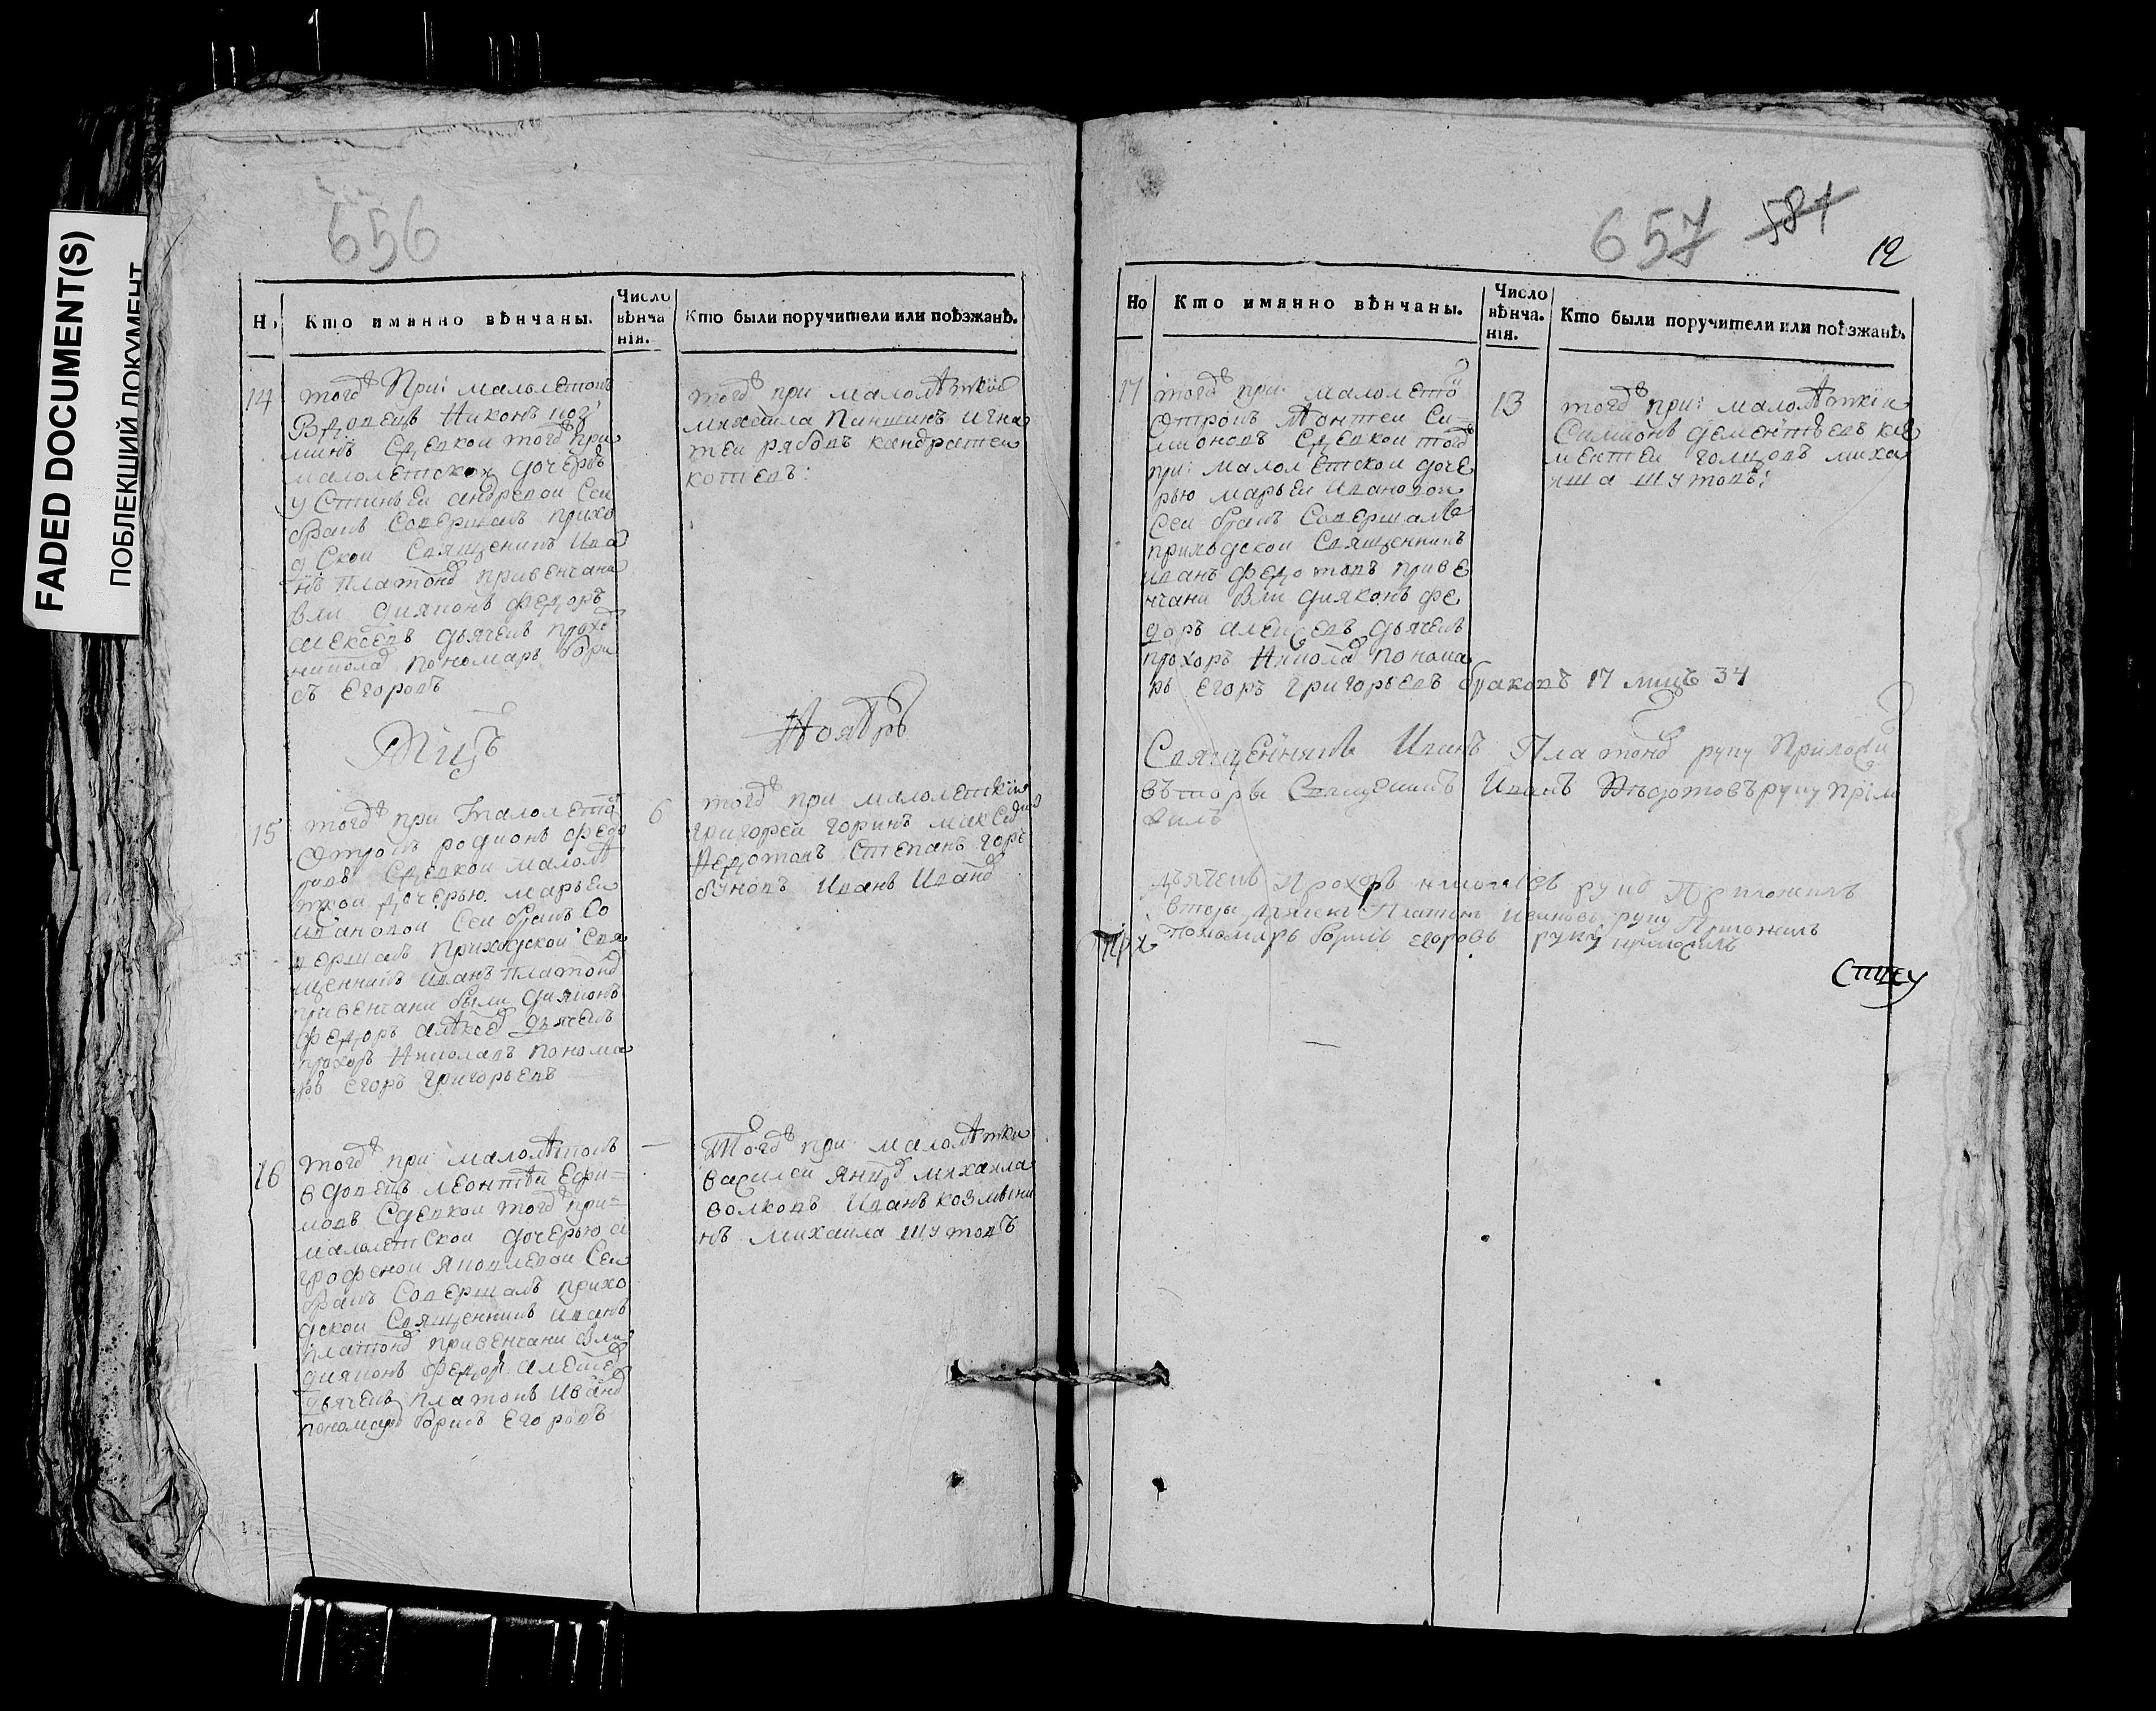 FADED DOCUMENT(S)
ПОБЛЕКШИЙ ДОКУМЕНТ
656
Но
Кто имянно вѣнчаны.
Число вѣнчанія.
Кто были поручители или поѣзжанѣ.
14
тогѡжъ При: малолетокъ
Вдовецъ Никонъ коз
минъ Сдевкой тогожъ при
малолетской дочерью
устиньей андревой Сей
бракъ Совершалъ прихо
дской Священникъ Ива
нъ платонов привенчани
Были дияконъ федоръ
алексеевъ дьячекъ прохо
николав пономарь Бори
съ Егоровъ
тогожъ при малолѣткие
михайла Паншинъ игна
теи рябовъ кандратеи
котевъ:
Мцъ
Ноябрь
15
тогожъ при малолетки
Отрокъ родионъ федо
ровъ Сдевкой малолѣ
ткой дочерью марьей
ивановой Сей бракъ Со
вершалъ Приходской Свя
щенникъ иванъ платонов
привенчани были дияконъ
федоръ алѣксев дьячекъ
прохоръ Николавъ понома
рь егоръ григорьевъ
6
тогожъ при малолеткие
григорей горинъ
Федотовъ Степанъ гор
буновъ Иванъ Иванов
16
тогожъ при малолѣтокъ
вдовецъ леонтѣй Ефи-
мовъ Сдевкой тогож при-
малолетской дочерью а
грофеной яковлевой Сей
бракъ Совершалъ прихо
дской Священникъ иванъ
платонов привенчани были
дияконъ федоръ алексев
дьячекъ платонъ иванов
пономарь борисъ Егоровъ
—
Тогожъ при малолѣтки
василей михаила
волковъ Иванъ козмыни
нъ михаила шутовъ
657 581
12
Но
Кто имянно вѣнчаны.
Число вѣнчанія.
Кто были поручители или поѣзжанѣ.
17
тогожъ при: малолетки
Отрокъ леонтей Си-
мионовъ Сдевкой тогож
при: малолетской доче
рью марьей ивановой
Сей бракъ Совершалъ
приходской Священникъ
иванъ федотовъ приве
нчани были дияконъ фе
доръ алексевъ дьячекъ
прохоръ Николав понома
рь Егоръ григорьевъ браковъ 17 лицъ 34
13
тогожъ при: малолѣткие
Симионъ дементьевъ кле
ментей голцовъ миха
йла шутовъ:
Священникъ Иванъ Платонов руку Приложи
въторы Священикъ Иванъ Федотовъ руку прило
жилъ
Дьячекъ Прохоръ николаевъ руку Приложилъ
вторы дьячекъ Платонъ Ивановъ руку Приложилъ
пономарь борисъ егоровъ руку приложилъ